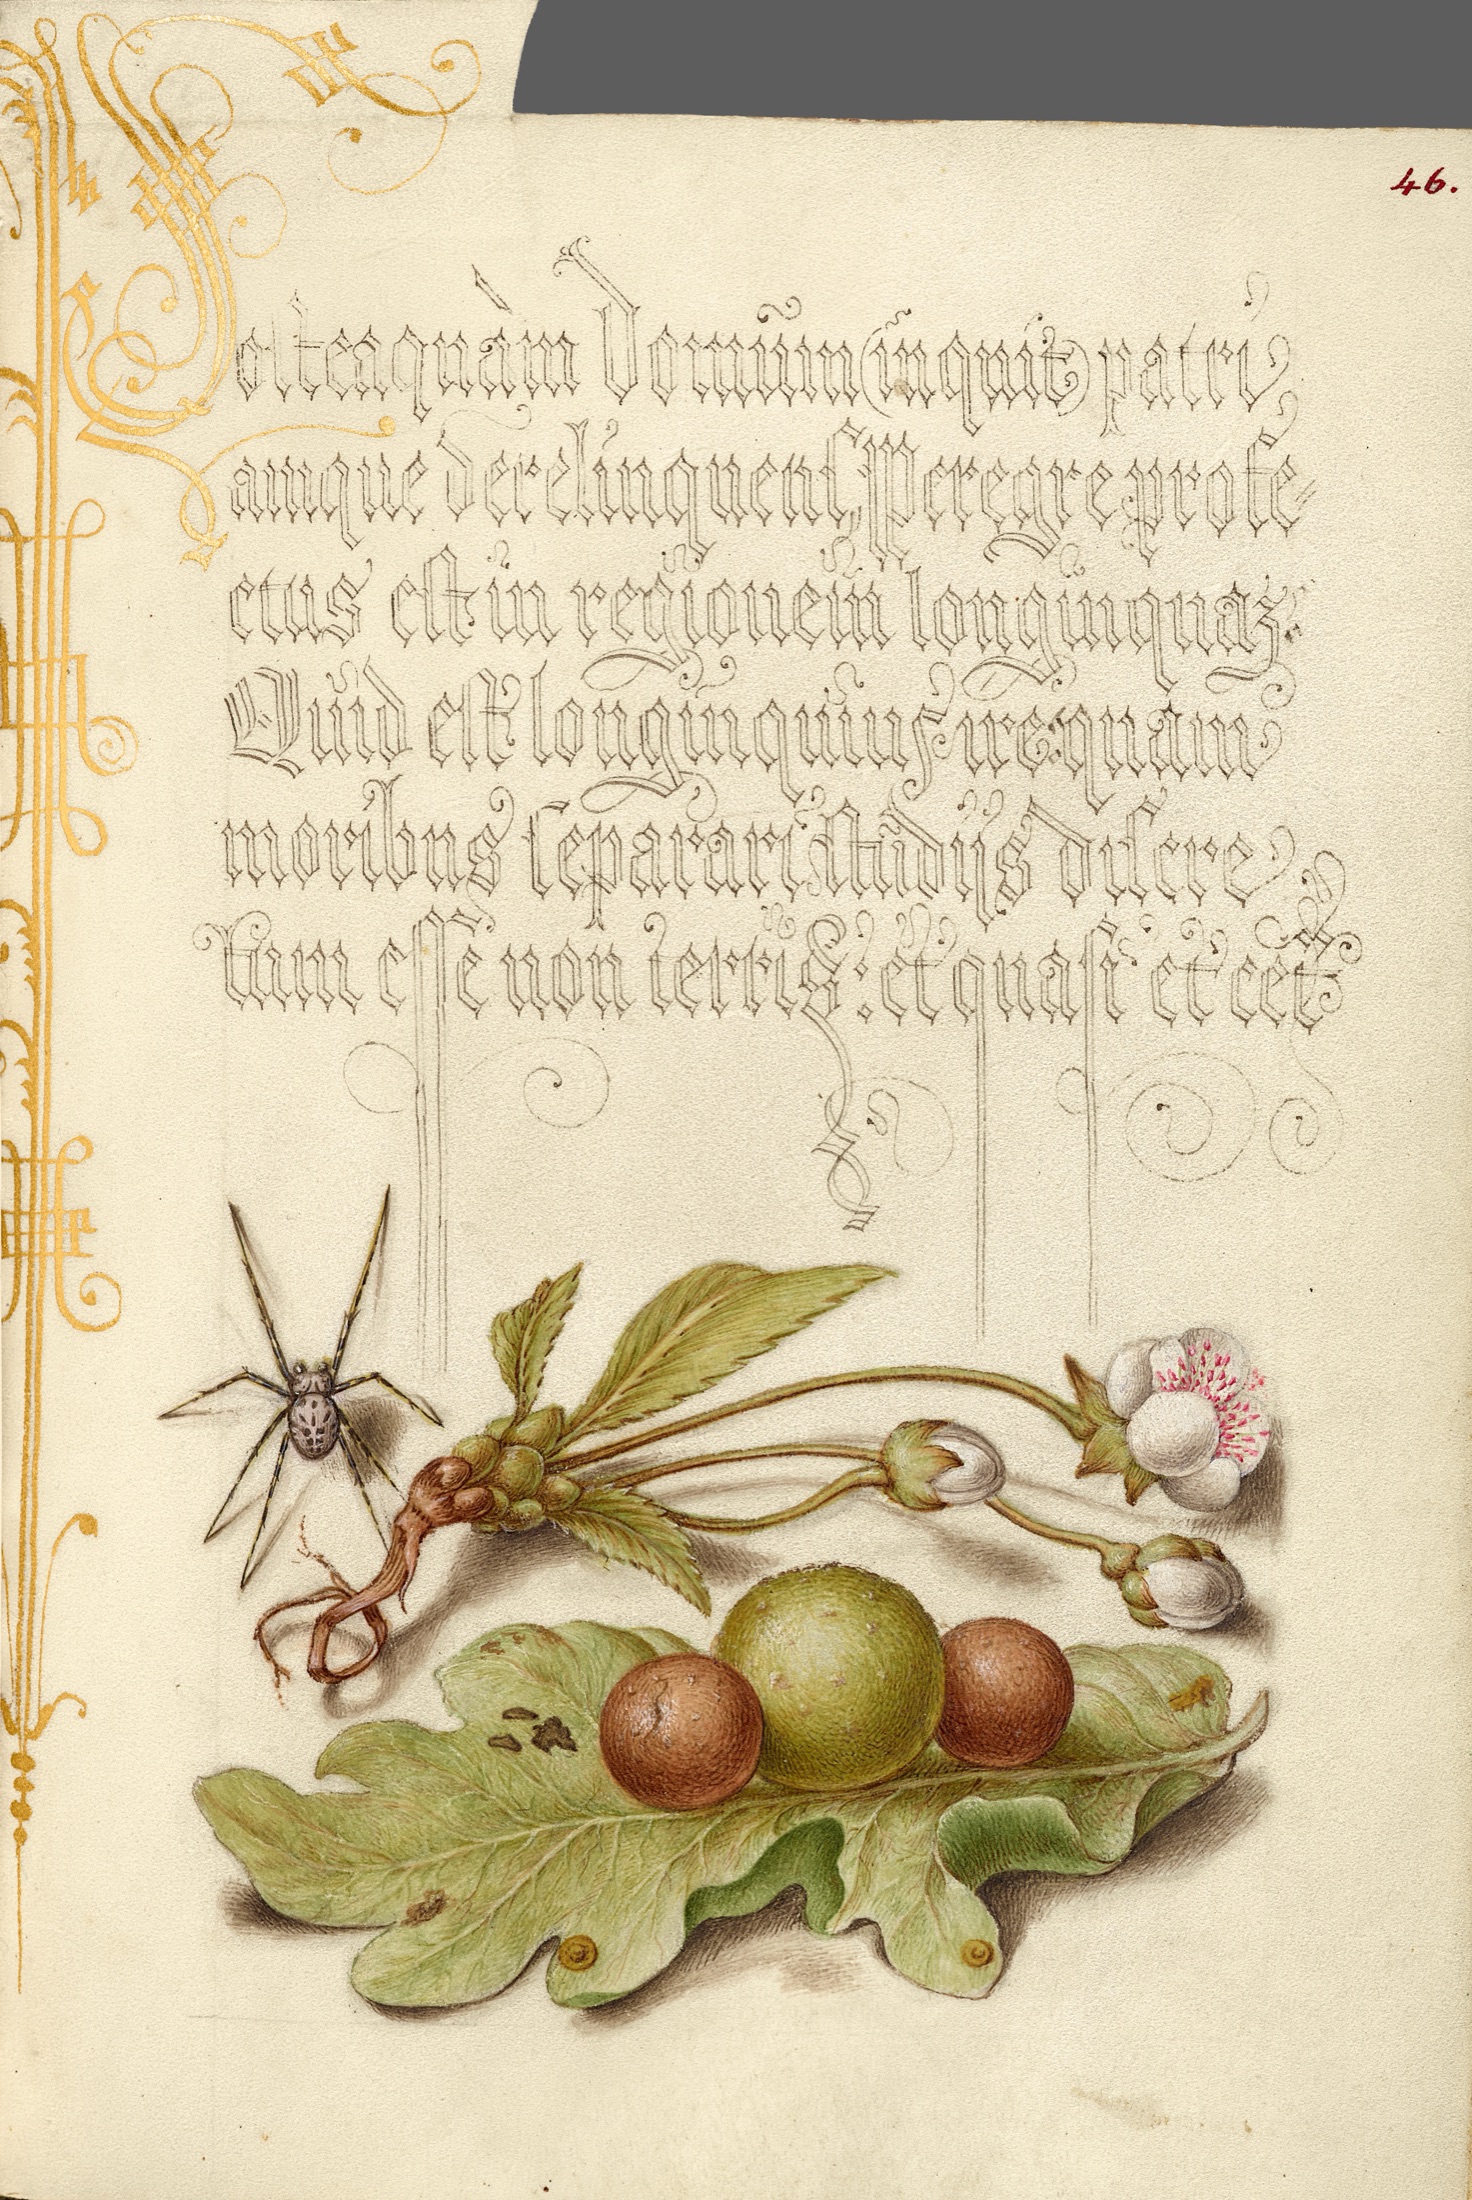 46.
Posteaquàm Domum (inquit) patri
amque derelinquens, Peregre profe-
ctus est in regionem longinquaꝫ:
Quid est longinquius ire: quàm
moribus separari, studijs discre
tum esse non terris: et quasi et cet